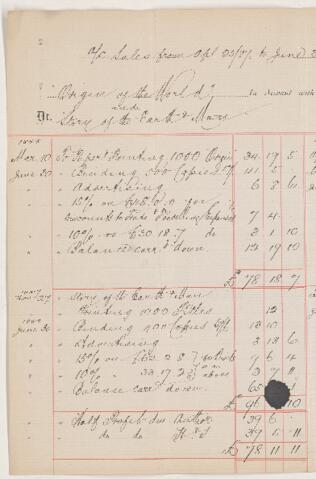 a/c Sales from Apl 25/87 to June 3
"Origin of the World"
In Account with
and
Dr. Story of the Earth & Man
1888
Mar 10 To Paper & Printing 1000 Origin 34 19 5
June 30 " Binding 500 Copies 11 5
" " Advertising 6 8 6
" " 15% on for
Discounts to Trade Travelling Expenses 7 4
" " 10% on £30 18 7 3 1 10
" " Balance carr. down 12 19 10
£ 78 18 7
1887
27 " Story of the Earth & Man
" Printing 1000 Titles 12
1888
June 30 " Binding 400 Copies 13 10
" " Advertising 3 18 6
" " 15% on £62 2 8 9 6 4
" " 10% " 33 17 2 above 3 7 11
" " Balance carr. down 65
£ 96 10
" " Half Profit due Author 39 6
" " do do H & S 39 5 11
£ 78 11 11